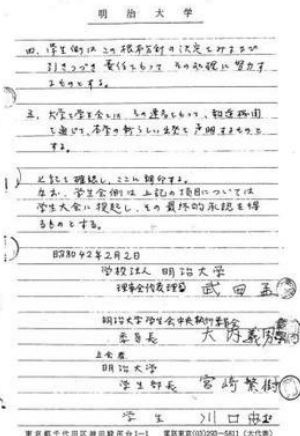 明治大学
四、学生側はこの根本方針の決定をみるまで
引きつづき責任をもってその処理に努力す
るものとする。
五、大学と学生会とは、その連名をもって、報道機関
を通じて、本学の新らしい出発を声明するものと
する。
上記を確認し、ここに調印する。
なお、学生会側は上記の項目については
学生大会に提起し、その最終的承認を得
るものとする。
昭和42年2月2日
学校法人 明治大学
理事会代表理事 武田孟
明治大学学生会中央執行委員会
委員長 大内義男
立会者
明治大学
学生部長 宮崎繁樹
学生 川口忠
東京都千代田区神田駿河台1-1 電話東京(03)293-5811(大代表)